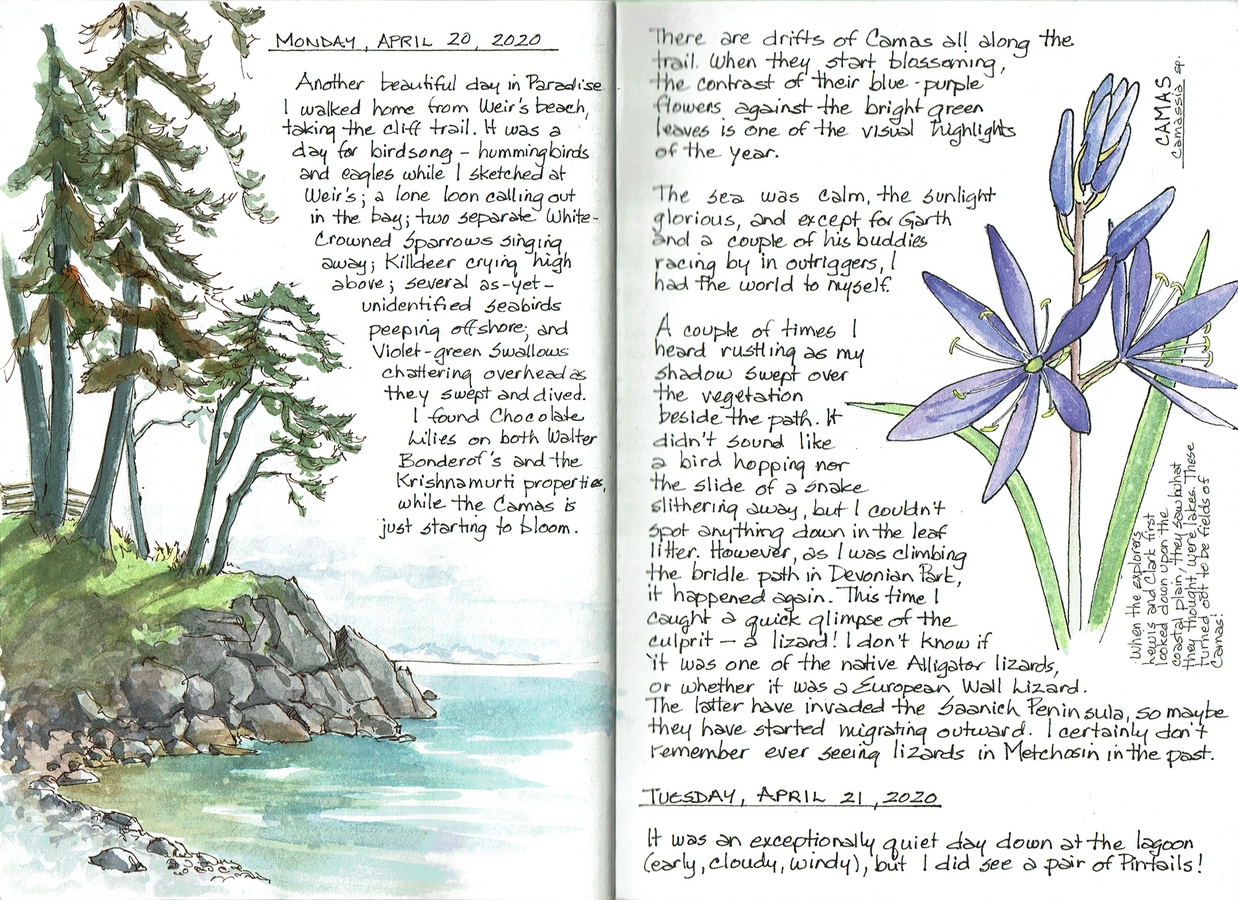 MONDAY, APRIL 20, 2020
Another beautiful day in Paradise.
I walked home from Weir's beach,
taking the cliff trail. It was a
day for birdsong – hummingbirds
and eagles while I sketched at
Weir's; a lone loon calling out
in the bay; two separate White-
Crowned Sparrows singing
away; Killdeer crying high
above; several as-yet-
unidentified seabirds
peeping offshore; and
Violet-green Swallows
chattering overhead as
they swept and dived.
I found Chocolate
Lilies on both Walter
Bonderof's and the
Krishnamurti properties,
while the Camas is
just starting to bloom.
There are drifts of Camas all along the
trail. When they start blossoming,
the contrast of their blue-purple
flowers against the bright green
leaves is one of the visual highlights
of the year.
The sea was calm, the sunlight
glorious, and except for Garth
and a couple of his buddies
racing by in outriggers, I
had the world to myself.
A couple of times I
heard rustling as my
shadow swept over
the vegetation
beside the path. It
didn't sound like
a bird hopping nor
the slide of a snake
slithering away, but I couldn't
spot anything down in the leaf
litter. However, as I was climbing
the bridle path in Devonian Park,
it happened again. This time I
caught a quick glimpse of the
culprit – a lizard! I don't know if
it was one of the native Alligator lizards,
or whether it was a European Wall Lizard.
The latter have invaded the Saanich Peninsula, so maybe
they have started migrating outward. I certainly don't
remember ever seeing lizards in Metchosin in the past.
CAMAS
Camassia sp.
When the explorers
Lewis and Clark first
looked down upon the
coastal plain, they saw what
they thought were lakes. These
turned out to be fields of
Camas!
TUESDAY, APRIL 21, 2020
It was an exceptionally quiet day down at the lagoon
(early, cloudy, windy), but I did see a pair of Pintails!